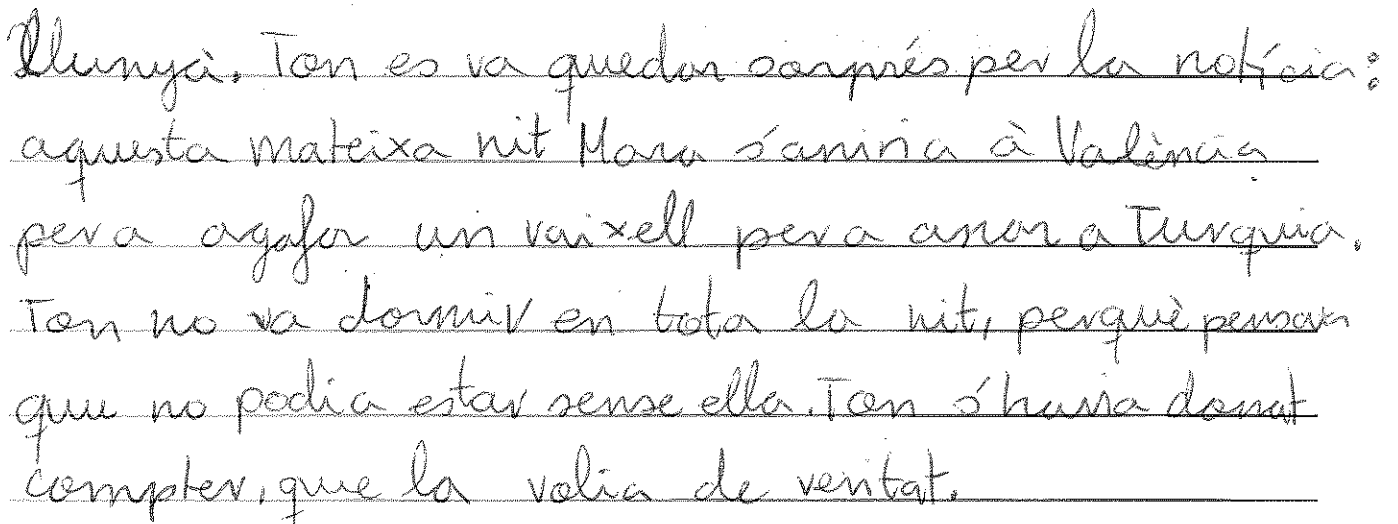 llunyà. Ton es va quedar sorprés per la notícia:
aquesta mateixa nit Mara s'aniria à València
per a agafar un vaixell per a anar a Turquia.
Ton no va dormir en tota la nit, perquè pensava
que no podia estar sense ella. Ton s'havia donat
compter, que la volia de veritat.